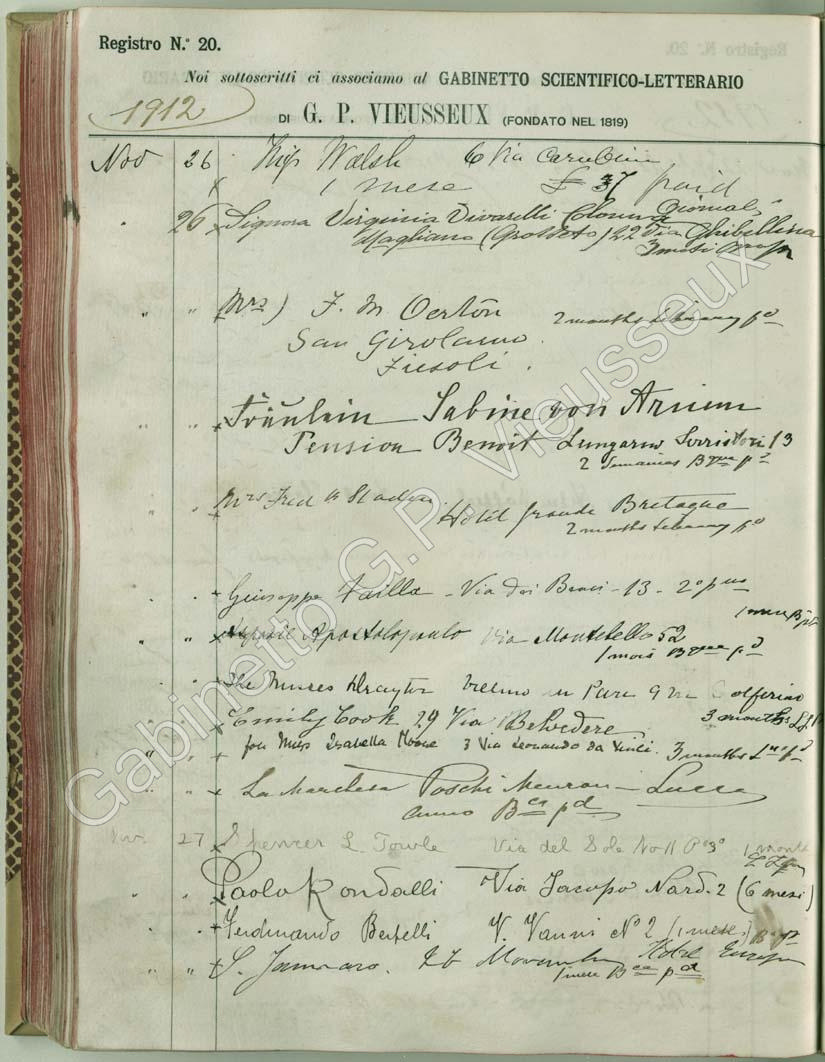 Registro N.º 20.
Noi sottoscritti ci associamo al GABINETTO SCIENTIFICO-LETTERARIO
1912
DI G. P. VIEUSSEUX (FONDATO NEL 1819)
Nov 26 Miss Walsh 6 Via
1 mese 37 paid
" 26 Signora Virginia Vivarelli Colonna
Magliano (Grosseto) 22 Via Ghibellina
3 mesi
" " Mrs) F. M. Oerton 2 months Library pd
San Girolamo
Fiesoli.
Fräulein Sabine von Arnim
Pension Benoit Lungarno Serristori 13
2 Semaines Bque pd
" " Mrs Fred
Hotel Grande Bretagne
2 months Library pd
" " Giuseppe Failla - Via dei Benci - 13 - 2º
1 mese
" " Apostolopoulo Via Montebello 52
1 mois Bque pd
" " The Misses Drayton
Solferino
" " Emily Cook 29 Via Belvedere 3 months
" " for Miss Isabella Moore 3 Via Leonardo da Vinci. 3 months
" " La Marchesa Poschi Meuron - Lucca
anno Bca pd
Nov. 27 Spencer L. Towle Via del Sole No 11 Pº 3º 1 month
" " Paolo Rondalli Via Jacopo Nardi 2 (6 mesi)
" " Ferdinando Bertelli V. Vanni Nº 2 (1 mese)
" " S. Jannaro. Hotel Europa
1 mese Bca pd
Gabinetto G.P. Vieusseux